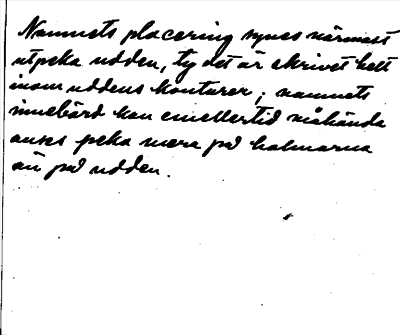 Namnets placering synes närmast
utpeka udden, ty det är skrivet helt
inom uddens konturer; namnets
innebörd kan emellertid måhända
anses peka mera på holmarna
än på udden.